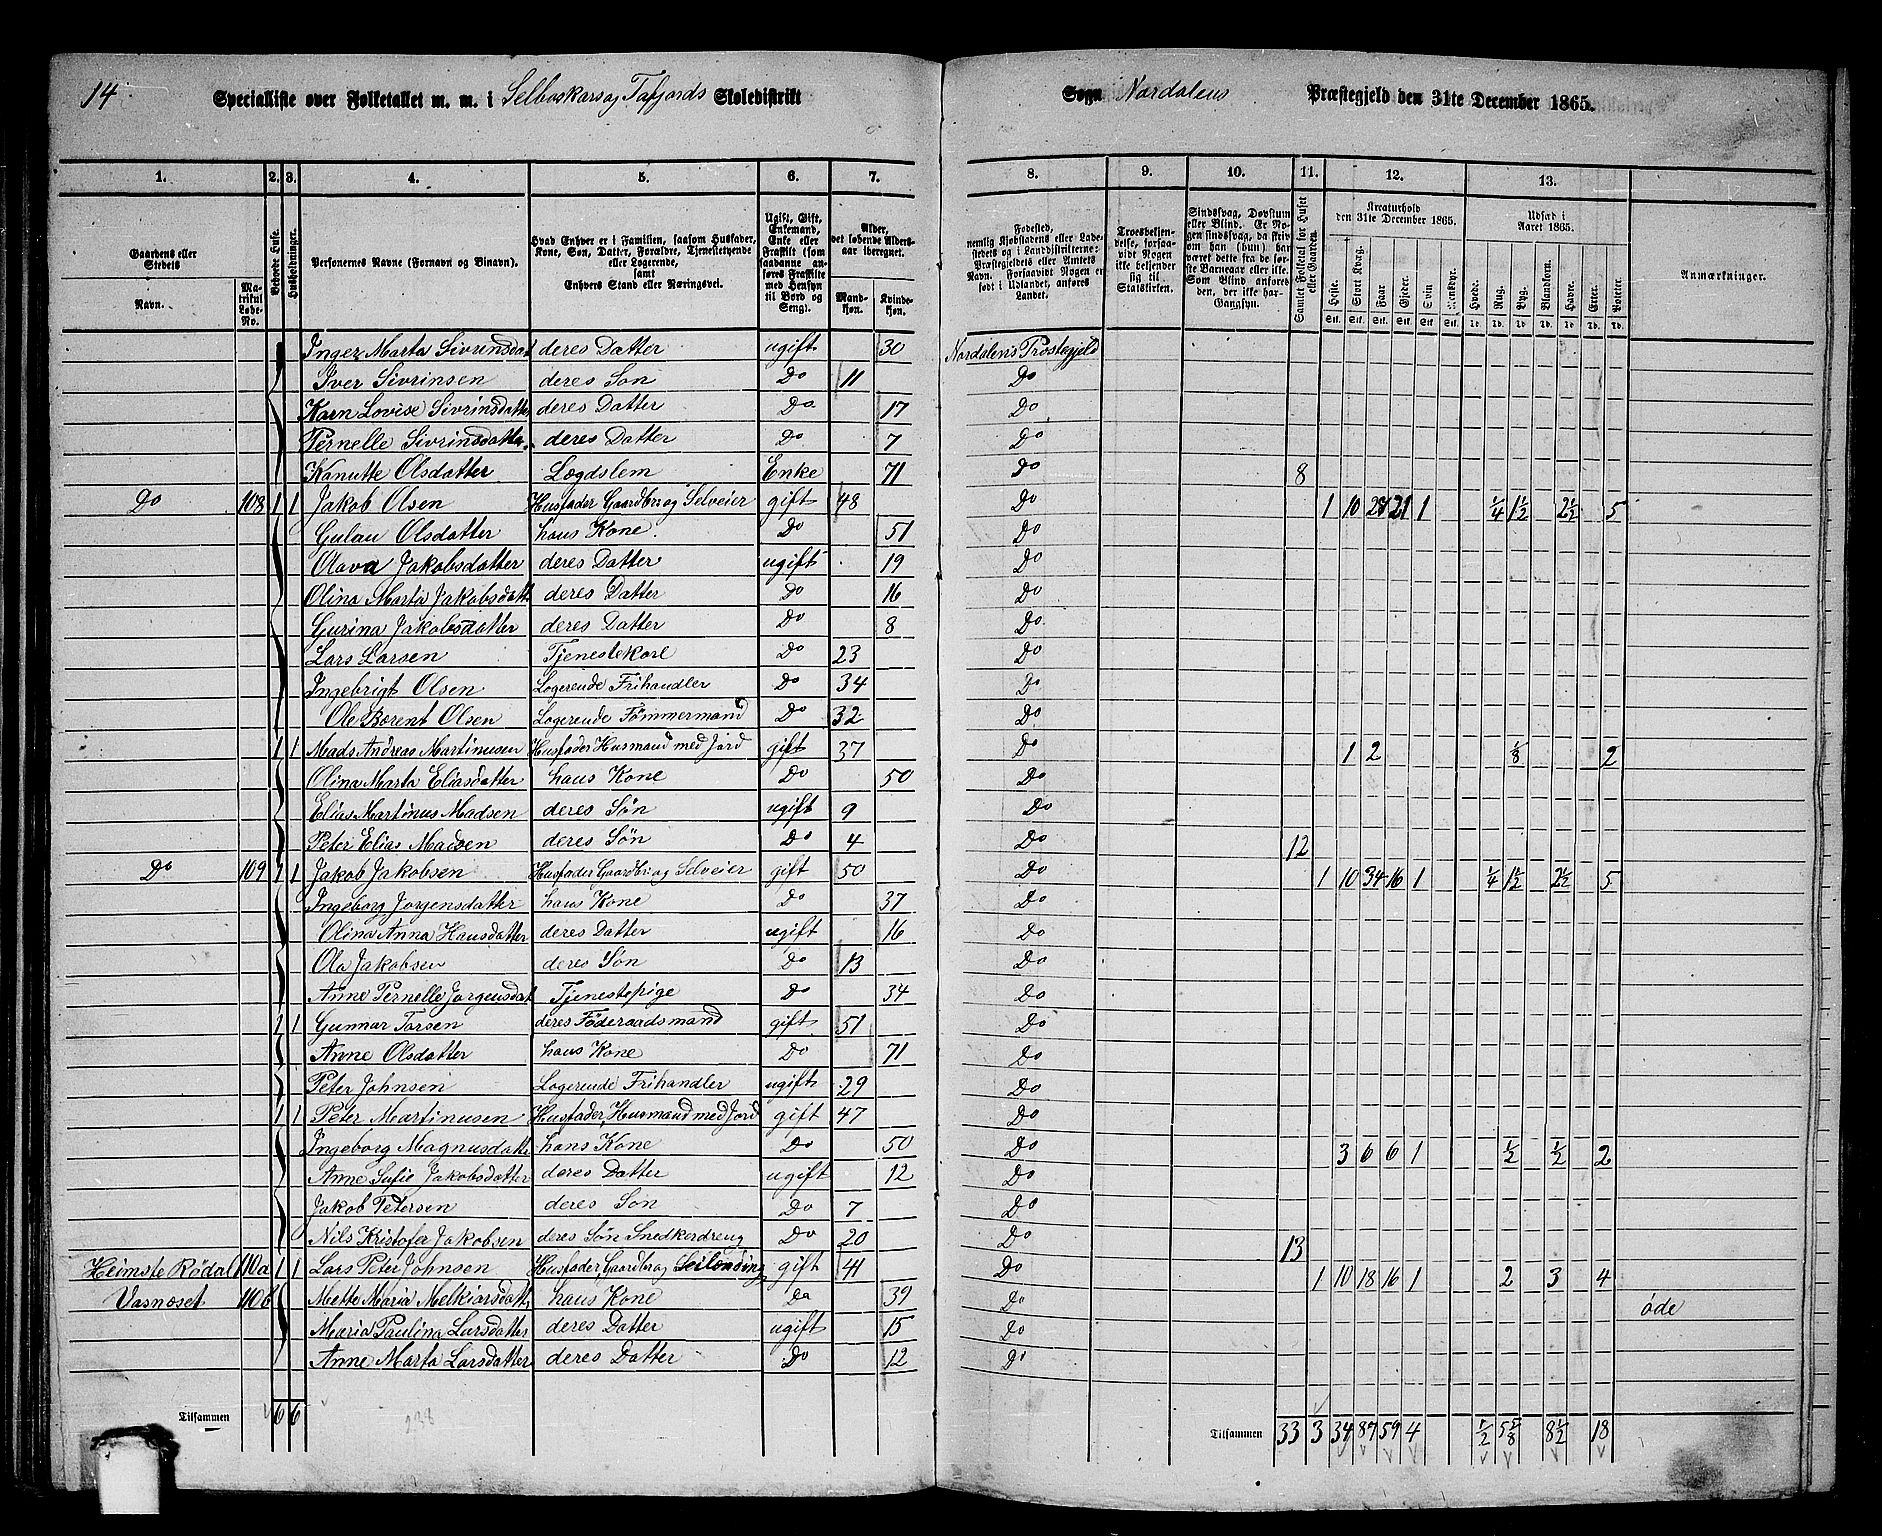 14.
Specialliste over Folketallet m. m. i Selboskars og Tafjords Skoledistrikt
Sogn Nordalens Præstegjeld den 31te December 1865.
1. 2. 3. 4. 5. 6. 7. 8. 9. 10. 11. 12. 13.
Gaardens eller Stedets
Navn.
Matrikul Løbe-No.
Beboede Huse.
Husholdninger.
Personernes Navne (Fornavn og Binavn).
Hvad Enhver er i Familien, saasom Husfader, Kone, Søn, Datter, Forældre, Tjenestetyende eller Logerende, samt Enhvers Stand eller Næringsvei.
Ugift, Gift, Enkemand, Enke eller Fraskilt (som saadanne anføres Fraskilte med Hensyn til Bord og Seng).
Alder, det løbende Aldersaar iberegnet.
Mandkjøn. Kvindekjøn.
Fødested, nemlig Kjøbstadens eller Ladestedets og i Landdistrikterne: Præstegjeldets eller Amtets Navn. Forsaavidt Nogen er født i Udlandet, anføres Landet.
Troesbekjendelse, forsaavidt Nogen ikke bekjender sig til Statskirken.
Sindssvag, Døvstum eller Blind. Er Nogen sindssvag, da skriv om han (hun) har været dette fra de første Barneaar eller ikke. Som Blind anføres den, der ikke har Gangsyn.
Samlet Folketal for Huset eller Gaarden.
Kreaturhold den 31te December 1865.
Heste. Stort Kvæg. Faar. Gjeder. Svin. Rensdyr.
Udsæd i Aaret 1865.
Hvede. Rug. Byg. Blandkorn. Havre. Erter. Poteter.
Anmærkninger.
Inger Marta Sivrinsdat deres Datter ugift 30 Nordalens Prestegjeld
Iver Sivrinsen deres Søn Do 11 Do
Karn Lovise Sivrinsdatter deres Datter Do 17 Do
Pernelle Sivrinsdatter deres Datter Do 7 Do
Kanutte Olsdatter Lægdslem Enke 71 Do 8
Do 108 1 1 Jakob Olsen Husfader Gaardbr og Selveier gift 48 Do 1 10 28 21 1 1/4 1 1/2 2 1/2 5
Gulau Olsdatter hans Kone. Do 51 Do
Olava Jakobsdatter deres Datter ugift 19 Do
Olina Marta Jakobsdatt deres Datter Do 16 Do
Gurina Jakobsdatter deres Datter Do 8 Do
Lars Larsen Tjenestekarl Do 23 Do
Ingebrigt Olsen Logerende Frihandler Do 34 Do
Ole Berent Olsen Logerende Tömmermand Do 32 Do
1 1 Mads Andreas Martinusen Husfader Husmand med Jord gift 37 Do 1 2 1/8 2
Olina Marta Eliasdatter hans Kone Do 50 Do
Elias Martinus Madsen deres Søn ugift 9 Do
Peter Elias Madsen deres Søn Do 4 Do 12
Do 109 1 1 Jakob Jakobsen Husfader Gaardbr og Selveier gift 50 Do 1 10 34 16 1 1/4 1 1/2 2 1/2 5
Ingeborg Jorgensdatter hans Kone Do 37 Do
Olina Anna Hansdatter deres Datter ugift 16 Do
Ola Jakobsen deres Søn Do 13 Do
Anne Pernelle Jorgensdat Tjenestepige Do 34 Do
1 1 Gunnar Torsen deres Föderaadsmand gift 51 Do
Anne Olsdatter hans Kone Do 71 Do
Peter Johnsen Logerende Frihandler ugift 29 Do
1 1 Peter Martinusen Husfader, Husmand med Jord gift 47 Do
Ingeborg Magnusdatt hans Kone Do 50 Do 3 6 6 1 1/2 1/2 2
Anne Sofie Jakobsdatter deres Datter ugift 12 Do
Jakob Petersen deres Søn Do 7 Do
Nils Kristofer Jakobsen deres Søn Snedkerdreng Do 20 Do 13
Heimste Rødal 110a 1 1 Lars Peter Johnsen Husfader, Gaardbr og gift 41 Do 1 10 18 16 1 2 3 4
Vasnæset 110b Mette Maria Melkiorsdatt hans Kone Do 39 Do øde
Maria Paulina Larsdatter deres Datter ugift 15 Do
Anne Marta Larsdatter deres Datter Do 12 Do
Tilsammen 6 6 238
Tilsammen 33 3 34 87 59 4 1/2 5 5/8 8 1/2 18